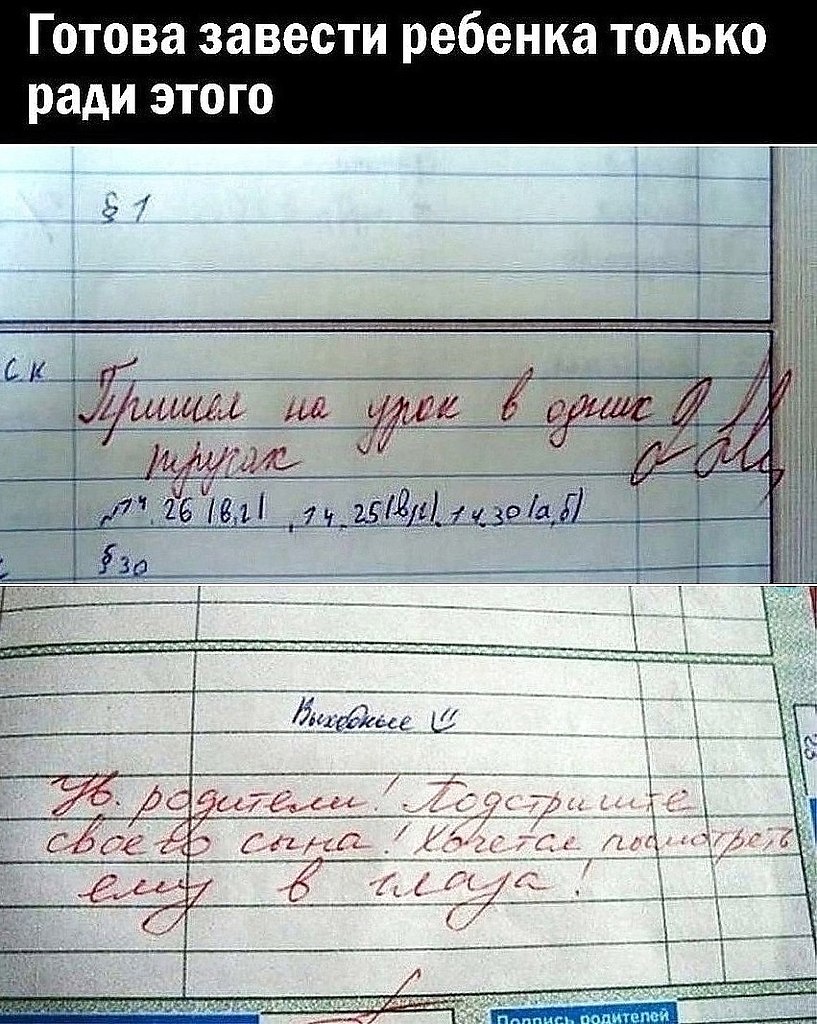 Готова завести ребенка только
ради этого
§ 1
ск
Пришел на урок в одних
трусах
№14.26 (в,г), 14.25(в,г), 14.30(а,б)
§ 30
Выходные
Ув. родители! Подстригите
своего сына! Хочется посмотреть
ему в глаза!
23
Подпись родителей